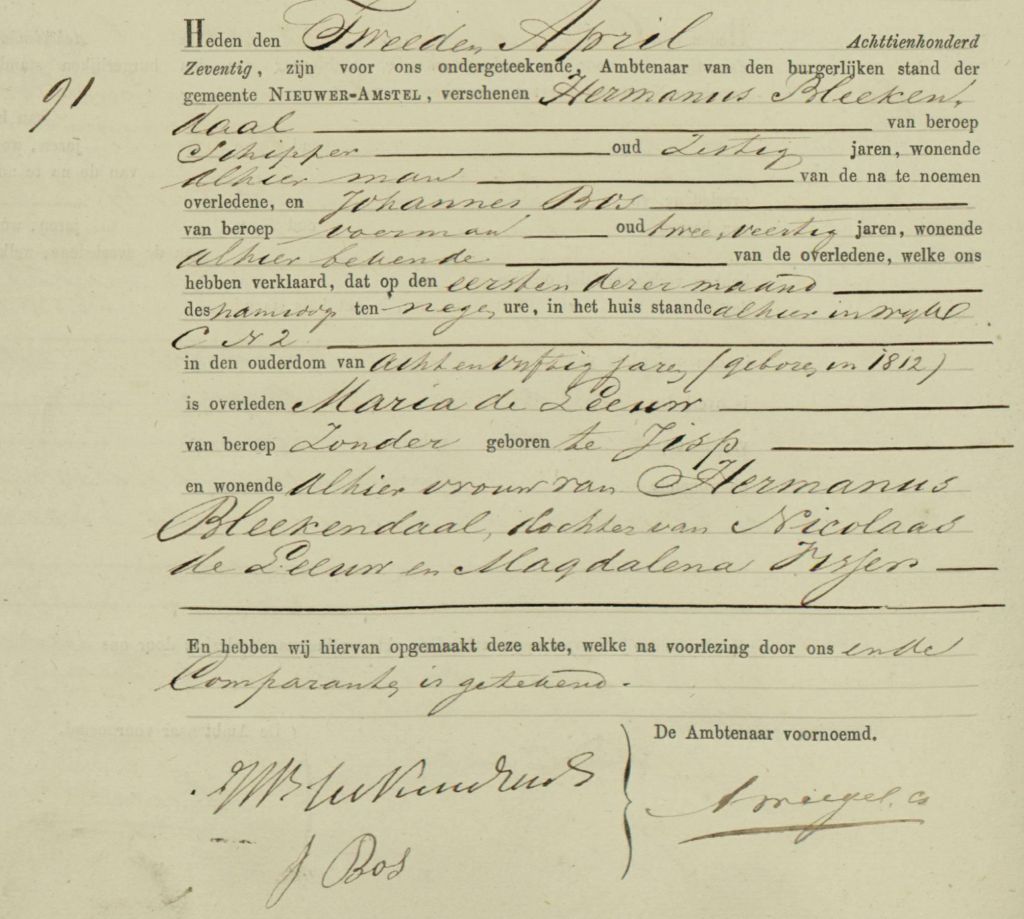 91
Heden den Tweeden April Achttienhonderd
Zeventig, zijn voor ons ondergeteekende, Ambtenaar van den burgerlijken stand der
gemeente NIEUWER-AMSTEL, verschenen Hermanus Bleeken,
daal van beroep
Schipper oud Zestig jaren, wonende
alhier man van de na te noemen
overledene, en Johannes Bos
van beroep voerman oud twee, veertig jaren, wonende
alhier bekende van de overledene, welke ons
hebben verklaard, dat op den eersten dezer maand
des namidag ten nege, ure, in het huis staande alhier in wyk
C N 2
in den ouderdom van acht en vyftig jare, (gebore, in 1812)
is overleden Maria de Leeuw
van beroep Zonder geboren te Jisp
en wonende alhier vrouw van Hermanus
Bleekendaal, dochter van Nicolaas
de Leeuw en Magdalena Visser
En hebben wij hiervan opgemaakt deze akte, welke na voorlezing door ons en de
Comparante, is getekend.
De Ambtenaar voornoemd.
J Bos